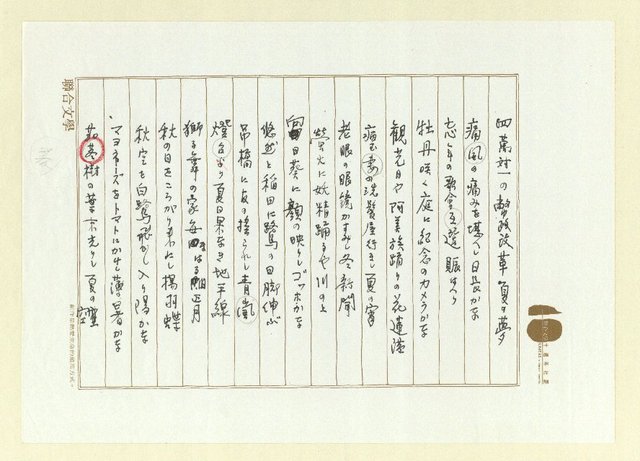 四萬対一の幣改革夏の夢
痛風の痛みを堪へし日長かな
忘年の歌会互選賑はへり
牡丹咲く庭に記念のカメラかな
観光日や阿美族踊りの花蓮港
病む妻の洗髪屋行きし夏の宵
老眼の眼鏡かすみし冬新聞
蛍火に妖精踊るや川の上
向日葵に顔の映りしゴッホかな
悠然と稲田に鷺の日脚伸ぶ
吊橋に友の揺られし青嵐
燈台より夏日果なき地平線
獅子舞の家毎はる正月
秋の日をころがり来にし揚羽蝶
秋空を白鷺飛かし入り陽かな
マヨネーズをトマトにかけし薄の暑かな
茄苳樹の葉不光りし夏の霊
聯合文學